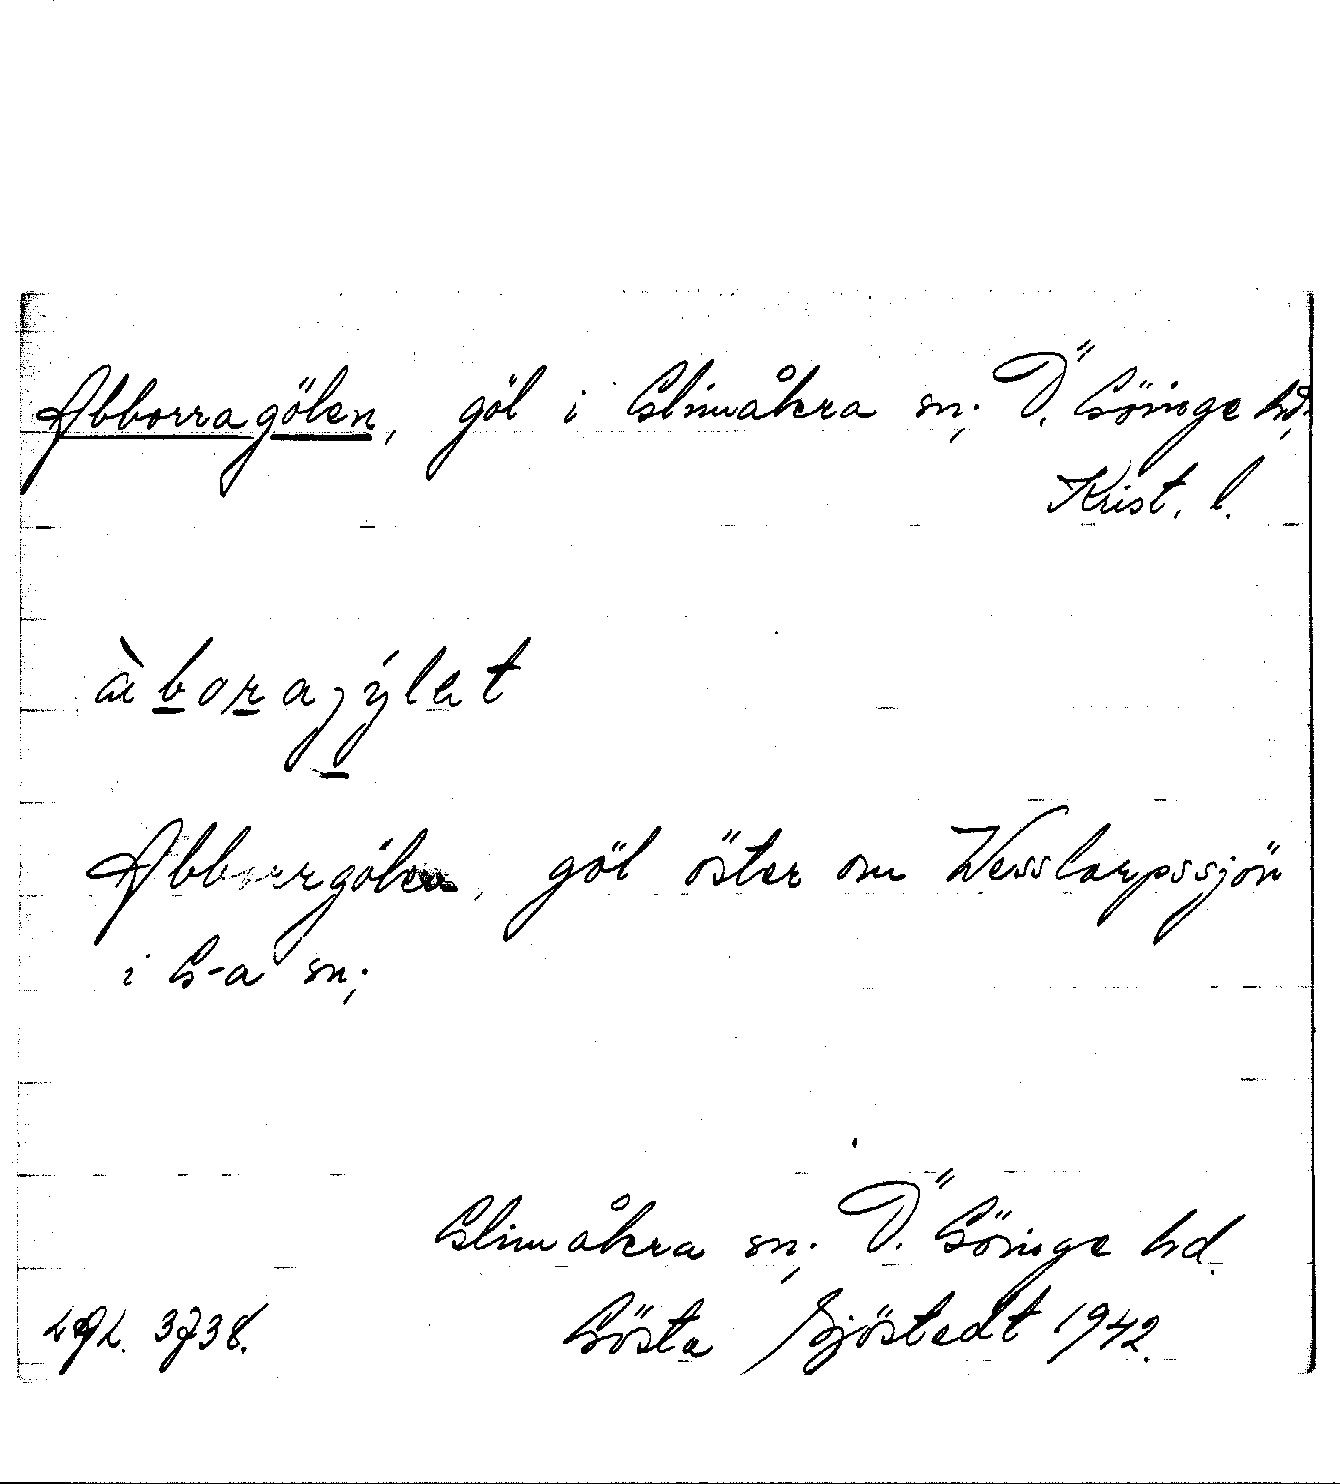 Abborragölen, göl i Glimåkra sn; Ö. Göinge hd,
Krist. l.
àborajýlet
Abborrgölen, göl öster om Wesslarpssjön
i G-a sn;
Glimåkra sn; Ö. Göinge hd.
3738. Gösta Sjöstedt 1942.